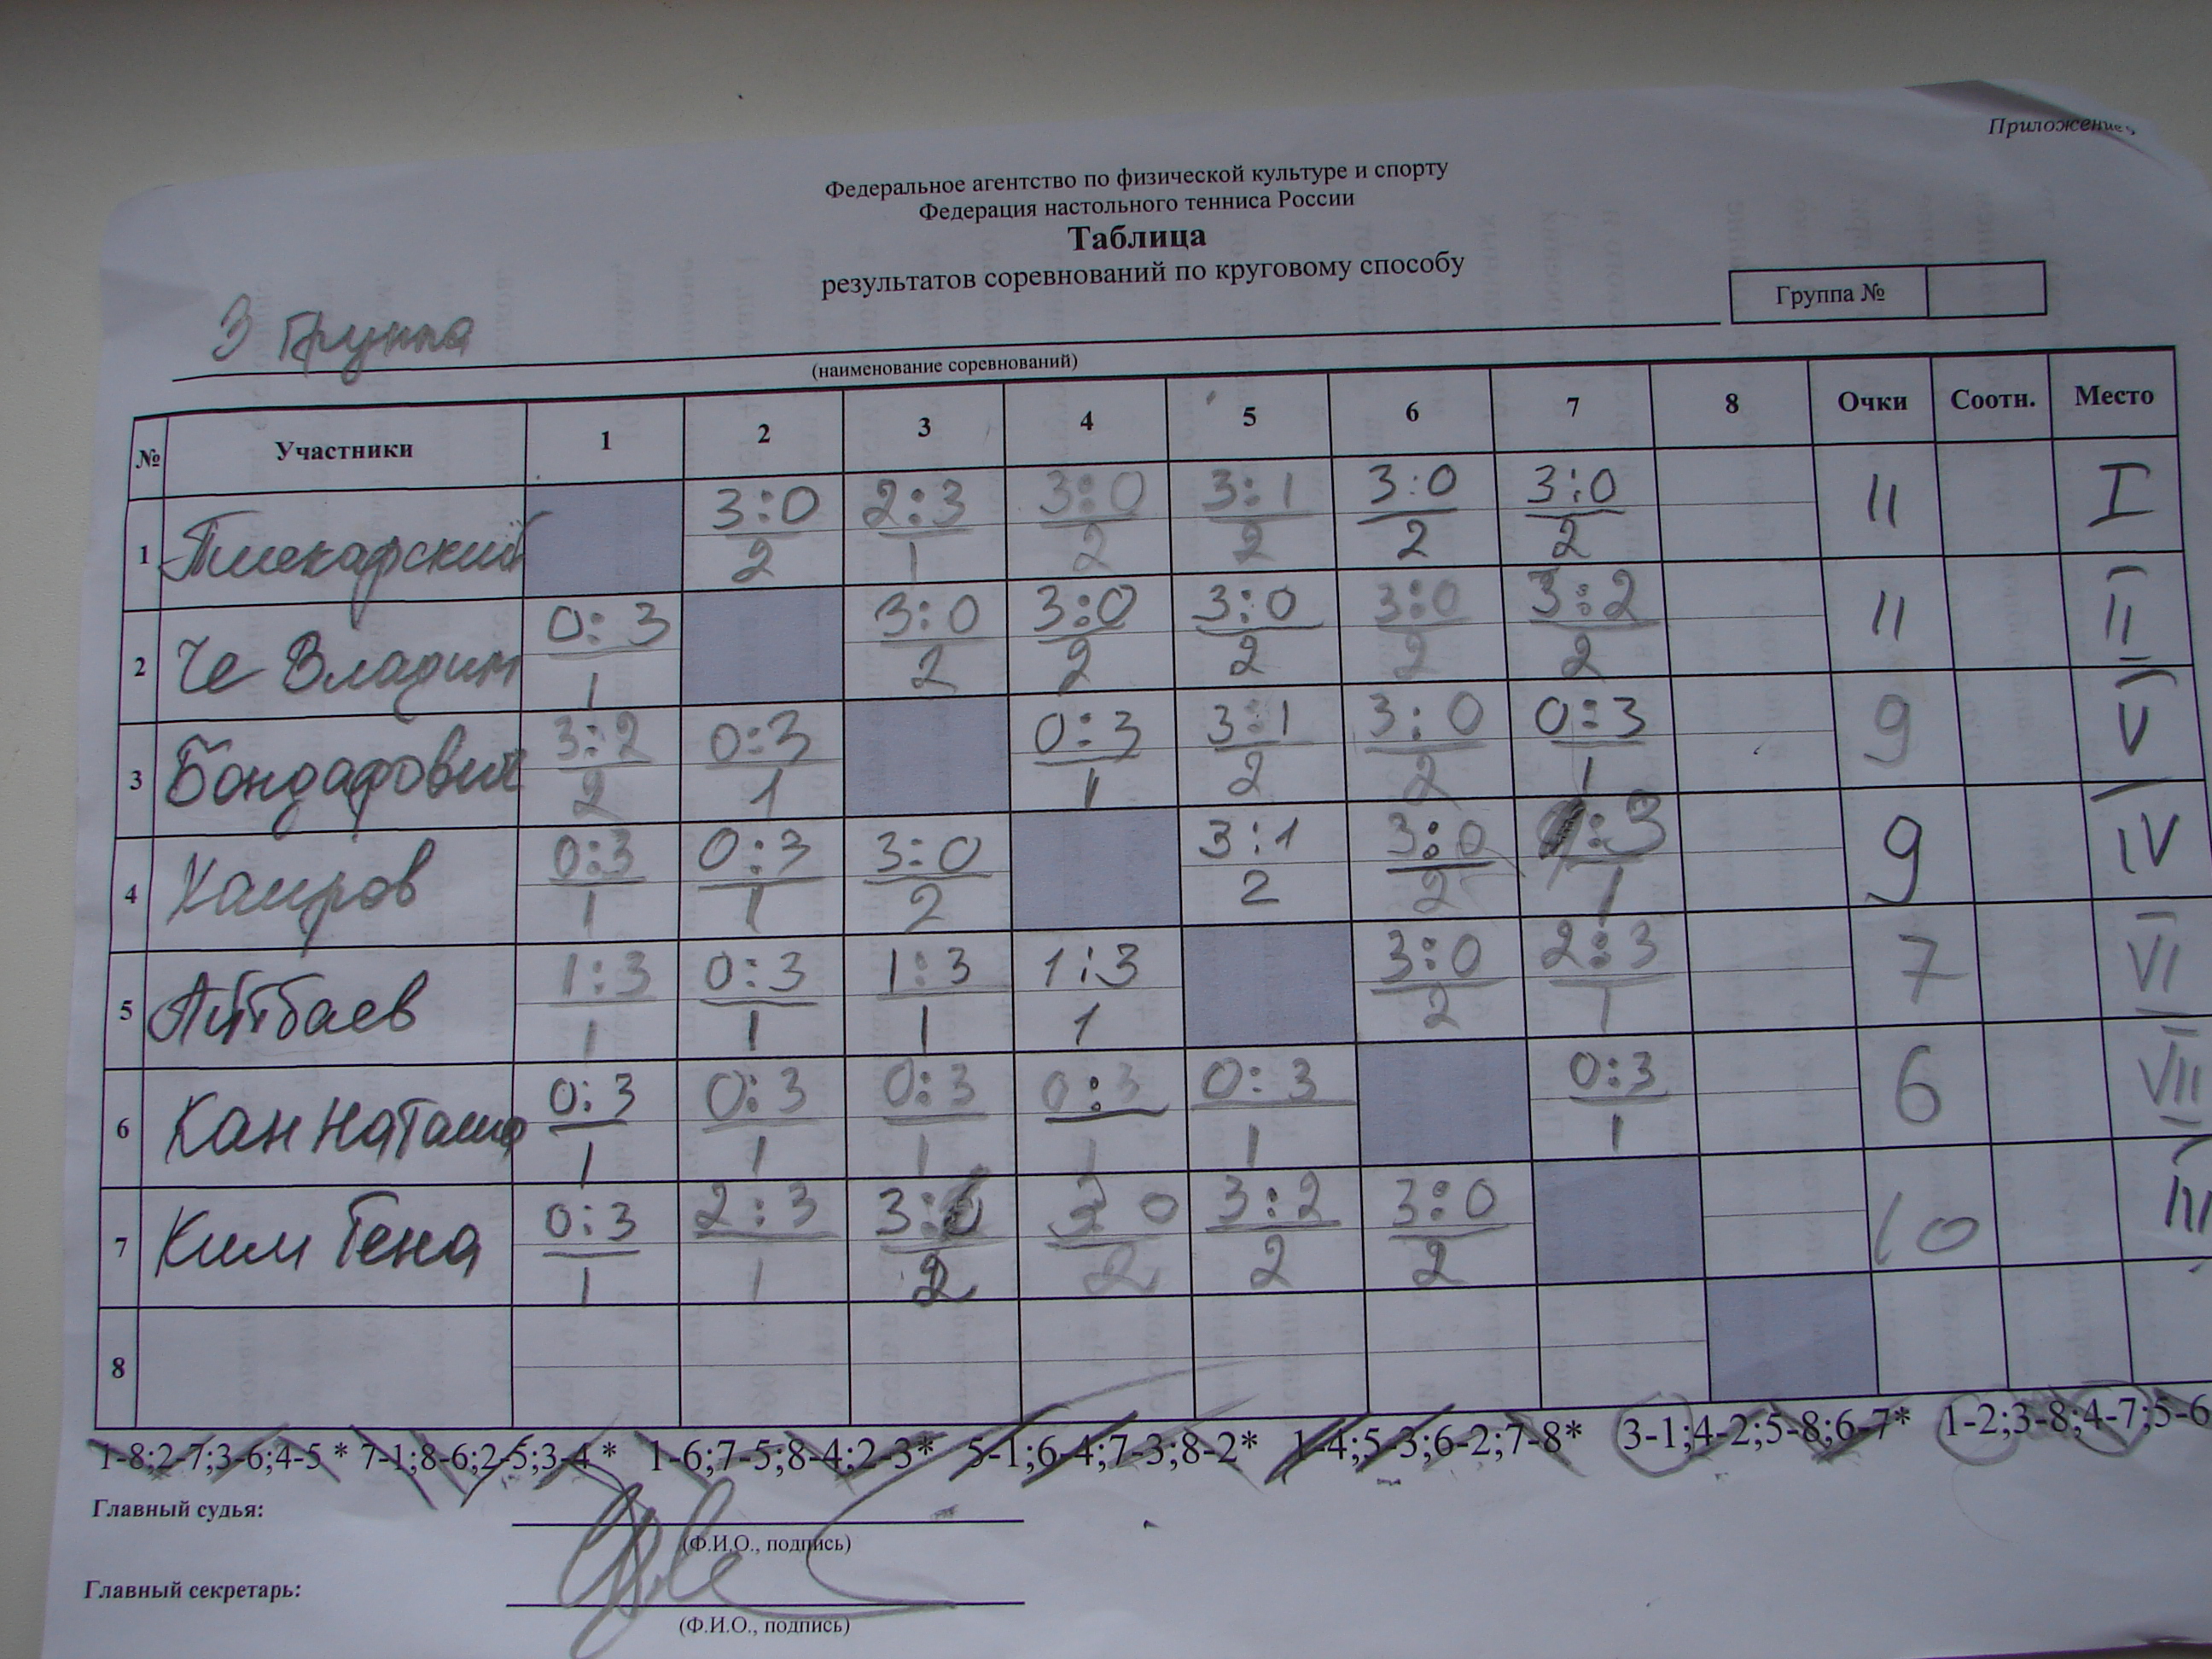 Приложение
Федеральное агентство по физической культуре и спорту
Федерация настольного тенниса России
Таблица
результатов соревнований по круговому способу
Группа №
3 Группа
(наименование соревнований)
№ Участники 1 2 3 4 5 6 7 8 Очки Соотн. Место
3:0 2:3 3:0 3:1 3:0 3:0
1 11 I
2 1 2 2 2 2
0:3 3:0 3:0 3:0 3:0 3:2
2 Че Владим 11 II
1 2 2 2 2 2
3:2 0:3 0:3 3:1 3:0 0:3
3 9 V
2 1 1 2 2 1
0:3 0:3 3:0 3:1 3:0 :3
4 Хаиров 9 IV
1 1 2 2 2 1
1:3 0:3 1:3 1:3 3:0 2:3
5 Айтбаев 7 VI
1 1 1 1 2 1
0:3 0:3 0:3 0:3 0:3 0:3
6 Кан Наташа 6 VII
1 1 1 1 1 1
0:3 2:3 3:0 3 0 3:2 3:0
7 Ким Гена 10 III
1 1 2 2 2 2
8
1-8;2-7;3-6;4-5 * 7-1;8-6;2-5;3-4 * 1-6;7-5;8-4;2-3* 5-1;6-4;7-3;8-2* 1-4;5-3;6-2;7-8* 3-1;4-2;5-8;6-7* 1-2;3-8;4-7;5-6
Главный судья:
(Ф.И.О., подпись)
Главный секретарь:
(Ф.И.О., подпись)